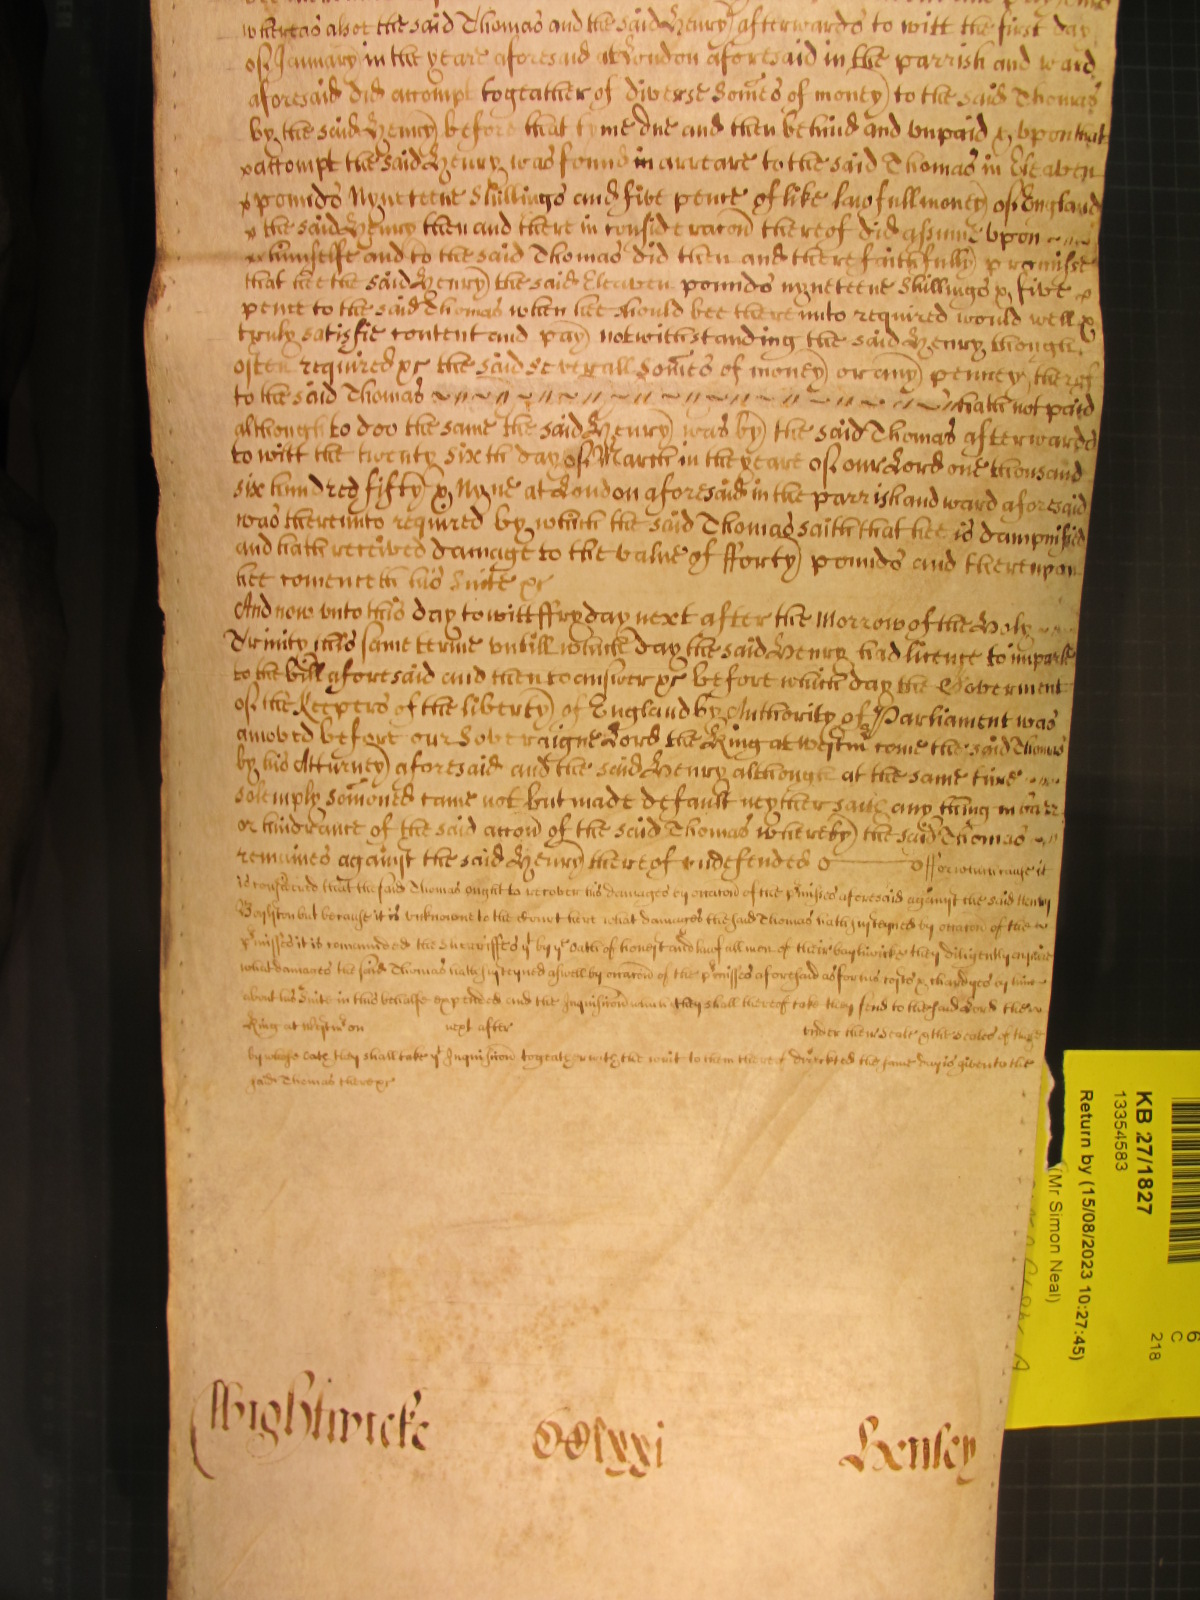 whereas alsoe the said Thomas and the said Henry afterwards to witt the first day
of January in the yeare aforesaid at London aforesaid in the parrish and ward
aforesaid did accompt togeather of diverse somes of money to the said Thomas
by the said Henry before that tyme due and then behind and unpaid & upon that
accompt the said Henry was found in arreare to the said Thomas in Eleaven
pounds Nyneteene Shillings and five pence of like lawfull money of England
& the said Henry then and there in consideracon thereof did assume upon
himselfe and to the said Thomas did then and there faithfully promise
that hee the said Henry the said Eleaven pounds nyneteene Shillings & five
pence to the said Thomas when hee should bee thereunto required would well &
truly satisfie content and pay notwithstanding the said Henry though
often required &c the said severall somes of money or any penney thereof
to the said Thomas hath not paid
although to doo the same the said Henry was by the said Thomas afterwards
to witt the twenty sixth day of March in the yeare of our Lord one thousand
six hundred fifty & Nyne at London aforesaid in the parrish and ward aforesaid
was thereunto required by which the said Thomas saith that hee is dampnified
and hath received damage to the value of fforty pounds and thereupon
hee comenceth his Suite &c
And now unto this day to witt ffryday next after the Morrow of the Holy
Trinity this same terme untill which day the said Henry had licence to imparle
to the bill aforesaid and then to answer &c before which day the Goverment
of the Keepers of the liberty of England by Authority of Parliament was
amoved before our Soveraigne Lord the King at Westm come the said Thomas
by his Atturney aforesaid and the said Henry although at the same time
solemply somoned came not but made default neyther saith any thing in barr
or hindrance of the said accon of the said Thomas whereby the said Thomas
remaines against the said Henry thereof undefended ffor which cause it
is considered that the said Thomas ought to recover his damages by occacon of the p'misses aforesaid against the said Henry
but because it is unknowne to the Court here what damages the said Thomas hath susteyned by occacon of the
p'misses it is comanded the Sherriffes yt by ye oath of honest and lawfull men of their bayliwicke they diligently enquire
what damages the said Thomas hath susteyned aswell by occacon of the p'misses aforesaid as for his costs & chardges by him
about his Suite in this behalfe expended and the Inquisicon which they shall thereof take they send to the said Lord the
King at Westm on next after under their seale & the seales of those
by whose oath they shall take yt Inquisicon togeather with the writ to them thereof directed the same day is given to the
said Thomas there &c
Wightwicke CClxxi Henley
KB 27/1827
13354583
Return by (15/08/2023 10:27:45)
(Mr Simon Neal)
6
C
218